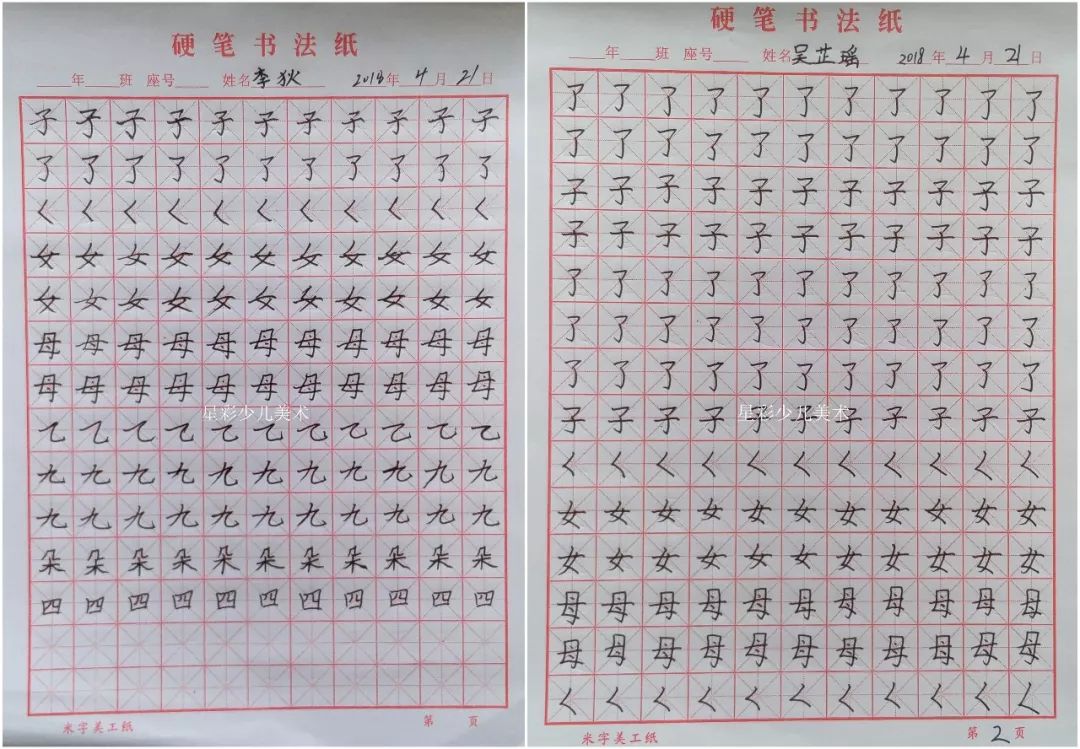 硬笔书法纸
年 班 座号 姓名 李狄 2018年 4 月 21 日
子子子子子子子子子子子
了了了了了了了了了了了
くくくくくくくくくくく
女女女女女女女女女女女
女女女女女女女女女女女
母母母母母母母母母母母
母母母母母母母母母母母
乙乙乙乙乙乙乙乙乙乙乙
九九九九九九九九九九九
九九九九九九九九九九九
朵朵朵朵朵朵朵朵朵朵朵
四四四四四四四四四四四
星彩少儿美术
米字美工纸 第 页
硬笔书法纸
年 班 座号 姓名 吴芷瑶 2018 年 4 月 21 日
了了了了了了了了了了了
了了了了了了了了了了了
子子子子子子子子子子子
子子子子子子子子子子子
了了了了了了了了了了了
了了了了了了了了了了了
了了了了了了了了了了了
子子子子子子子子子子子
くくくくくくくくくくく
女女女女女女女女女女女
女女女女女女女女女女女
母母母母母母母母母母母
母母母母母母母母母母母
くくくくくくくくくくく
星彩少儿美术
米字美工纸 第 2 页